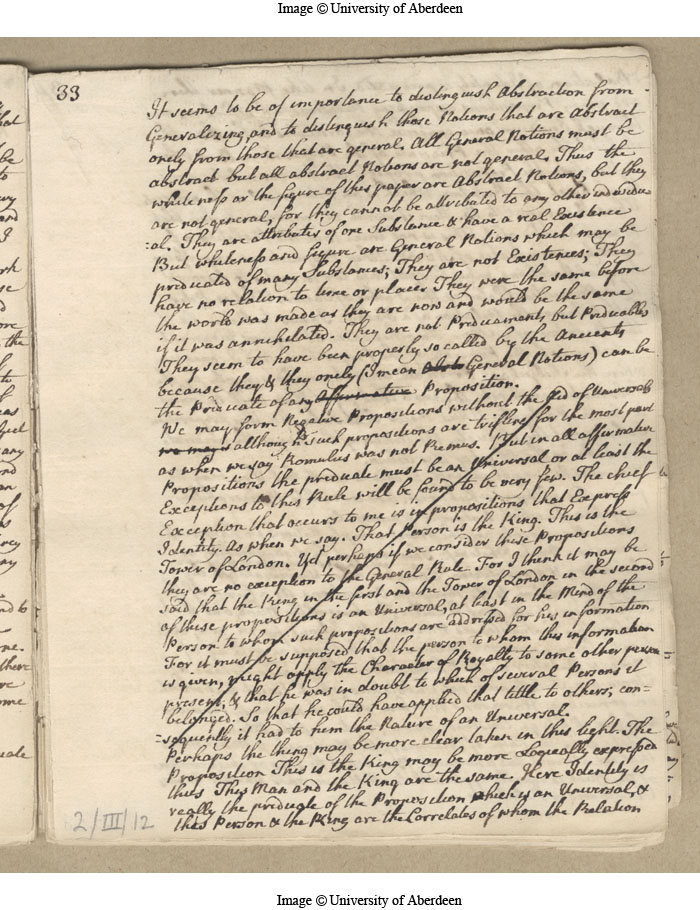 Image © University of Aberdeen
33
It seems to be of importance to distinguish Abstraction from
Generalizing, and to distinguish those Notions that are Abstract
onely from those that are general. All General Notions must be
abstract but all abstract Notions are not general. Thus the
whiteness or the figure of this paper are Abstract Notions, but they
are not general, for they cannot be attributed to any other individu
:al. They are attributes of one Substance & have a real Existence
But whiteness and figure are General Notions which may be
predicated of many Substances; They are not Existences; They
have no relation to time or place They were the same before
the world was made as they are now and would be the same
if it was annihilated. They are not Predicaments, but Predicables
They seem to have been properly so called by the Ancients
because they & they onely (I mean General Notions) can be
the Predicate of any Affirmative Proposition.
We may form Negative Propositions without the aid of Universals
although such propositions are trifling for the most part
as when we say Romulus was not Remus. But in all affirmative
Propositions the predicate must be an Universal or at least the
Exceptions to this Rule will be found to be very few. The chief
Exception that occurs to me is in propositions that Express
Identity. As when we say. That Person is the King. This is the
Tower of London. Yet perhaps if we consider these Propositions
they are no exception to the General Rule. For I think it may be
said that the King in the first and the Tower of London in the second
of these propositions is an Universal, at least in the Mind of the
Person to whom such propositions are addressed for his information
For it must be supposed that the person to whom this information
is given, might apply the Character of Royalty to some other person
present; & that he was in doubt to which of several Persons it
belonged. So that he could have applied that title to others; con=
=sequently it had to him the Nature of an Universal.
Perhaps the thing may be more clear taken in this light. The
Proposition This is the King may be more Logically expressed
thus This Man and the King are the same. Here Identity is
really the predicate of the Proposition which is an Universal, &
this Person & the King are the Correlates of whom the Relation
2/III/12
Image © University of Aberdeen